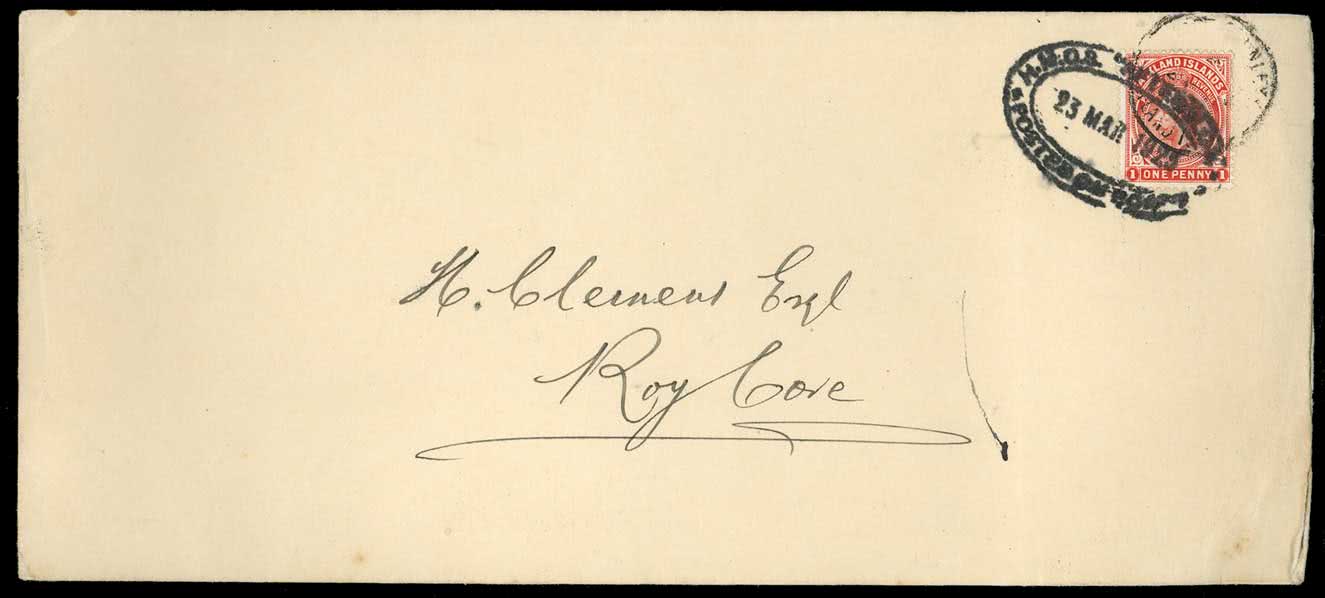 H.M.O.S.
23 MAR
"POSTED ON BOARD"
KLAND ISLANDS
REVENUE
1 ONE PENNY 1
H. Clemens Esq
Roy Cove